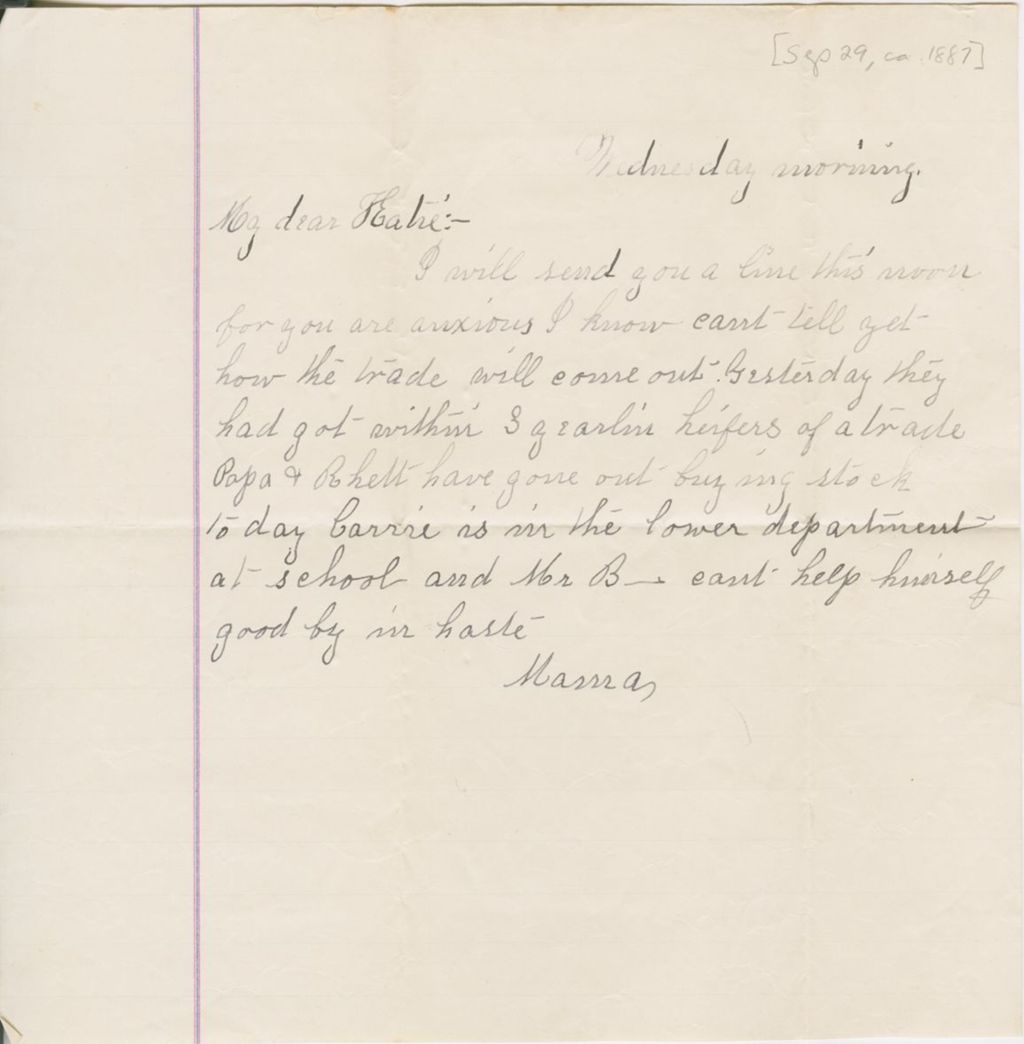 [Sep 29, ca. 1887]
Wednesday morning.
My dear Hatie:-
I will send you a line this noon
for you are anxious I know cant tell yet
how the trade will come out. Yesterday they
had got within 3 yearlin heifers of a trade
Papa & Rhett have gone out buying stock
to day Carrie is in the lower department
at school and Mr B—. cant help himself
good by in haste
Mama,